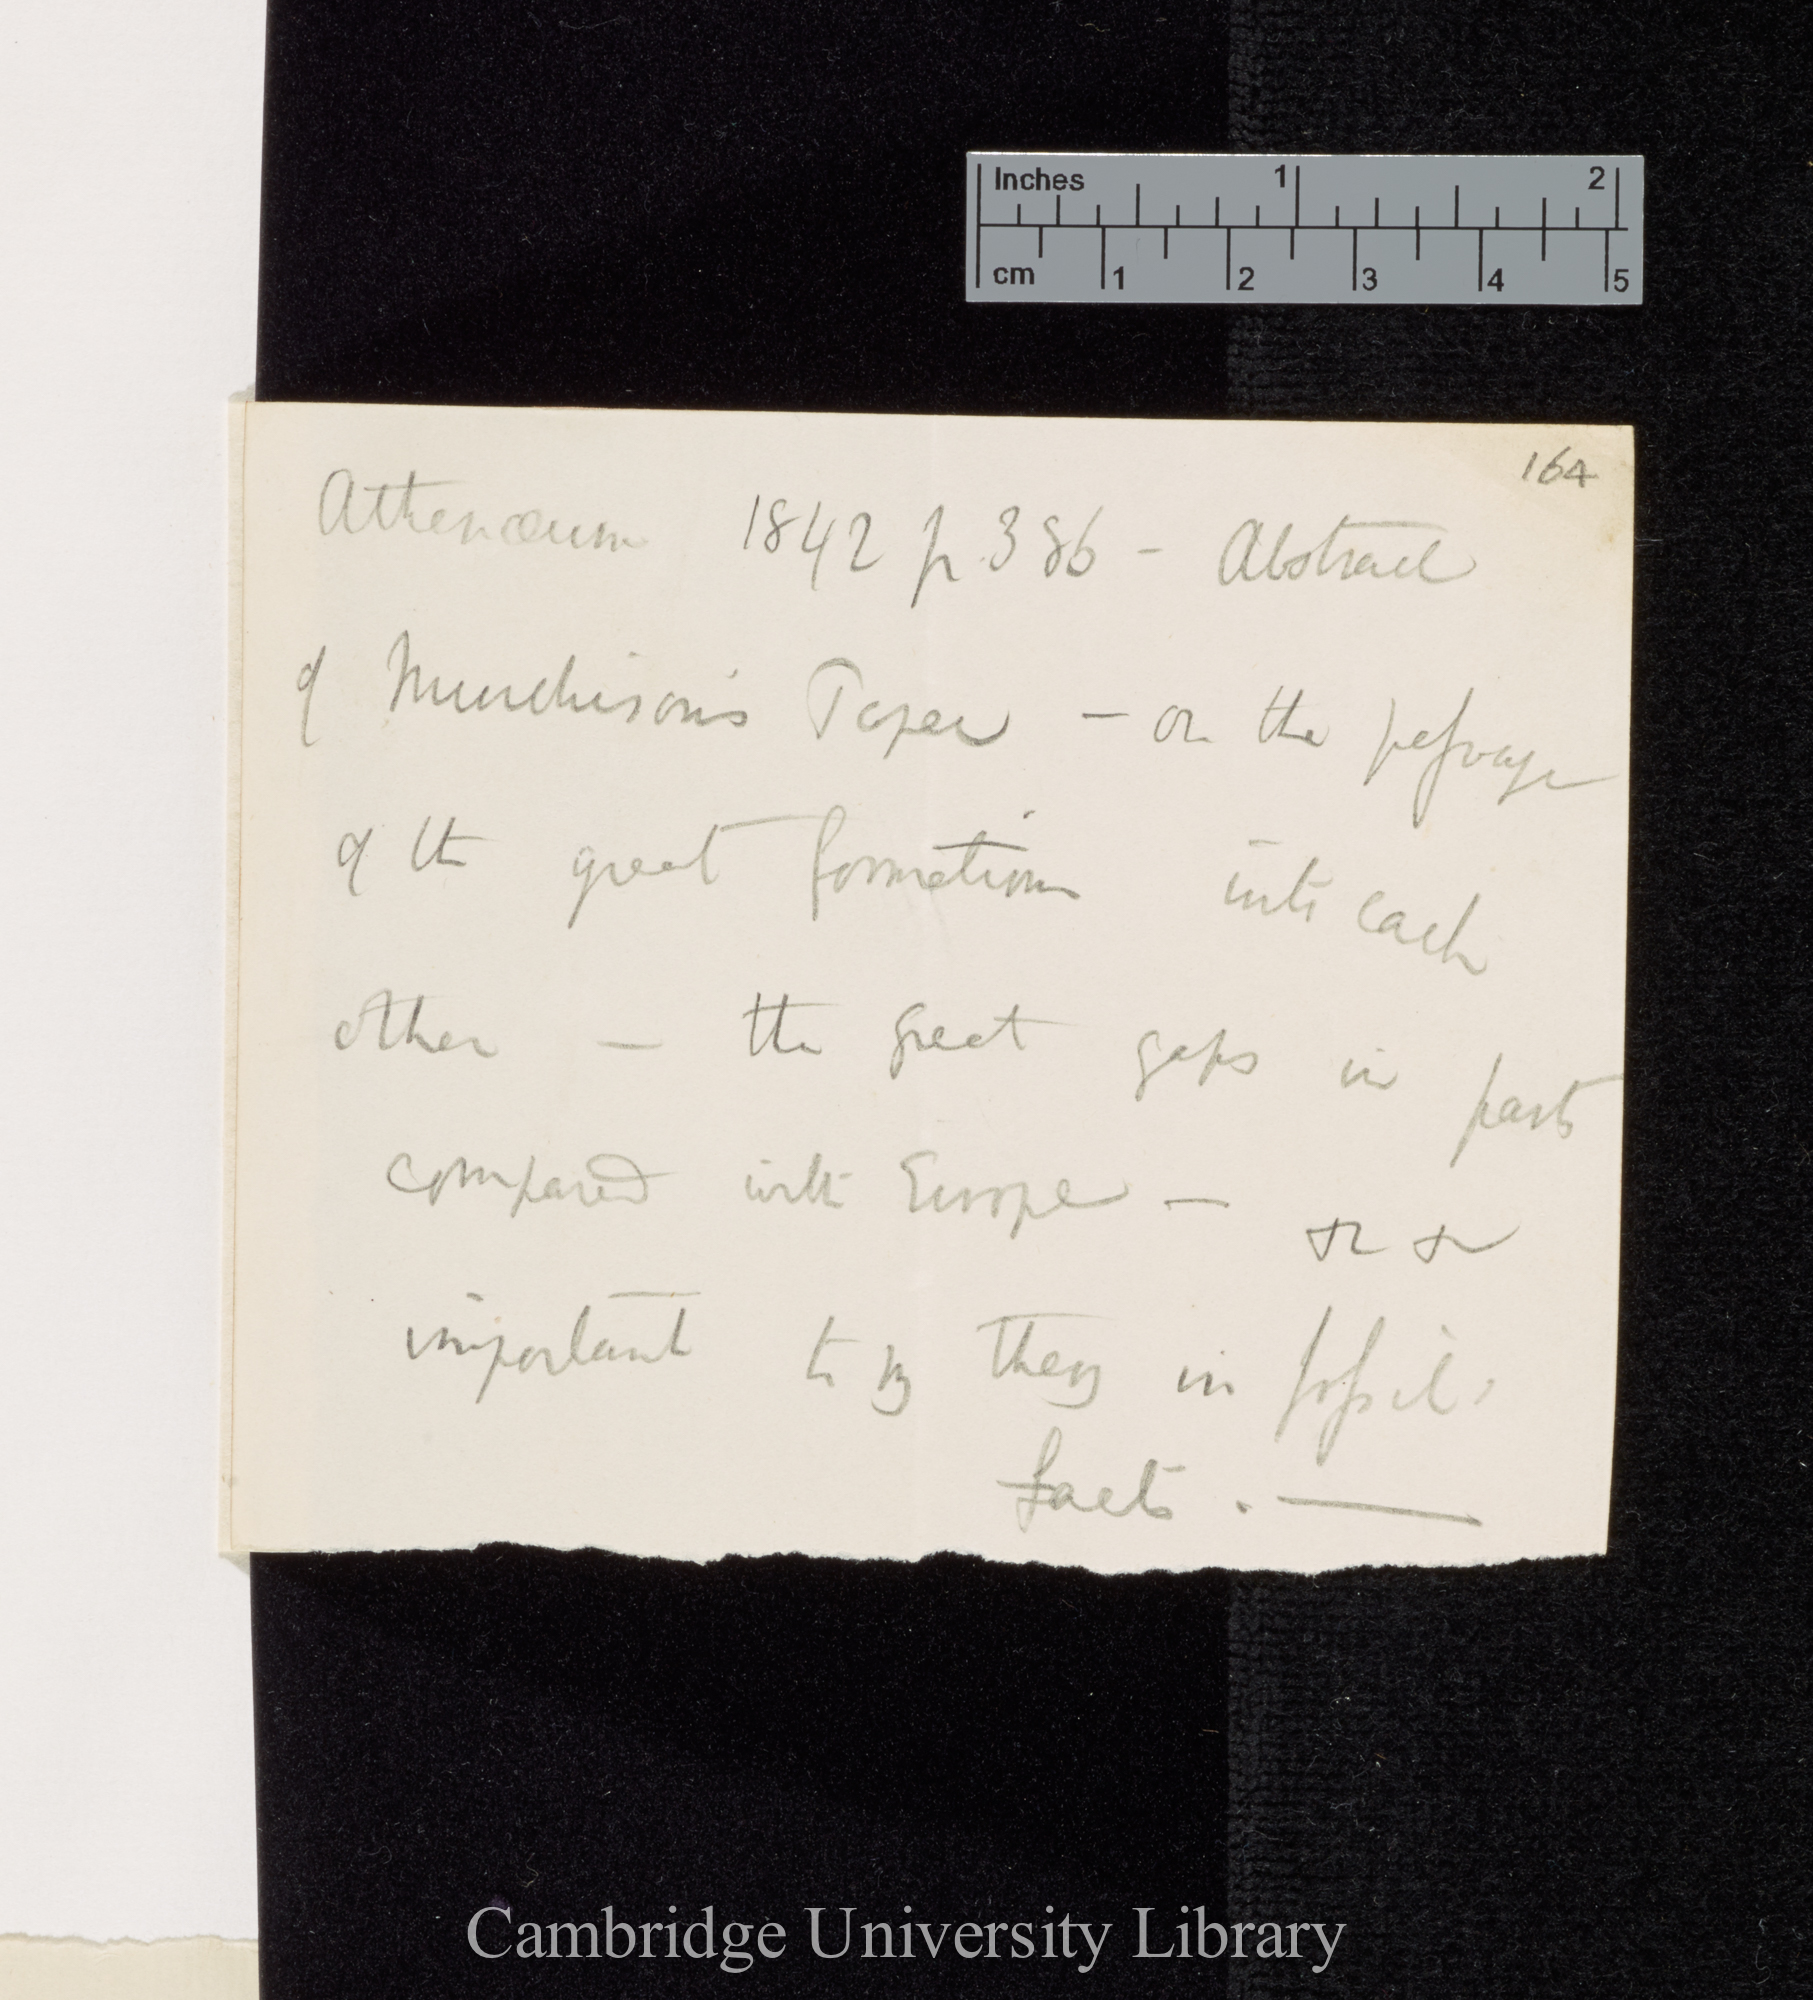 Inches 1 2
cm 1 2 3 4 5
164
Athenæum 1842 p. 386 — Abstract
of Murchison's Paper — on the passage
of the great formations into each
other — the great gaps in parts
compared with Europe — &c &c
important to my theory in fossil
facts. —
Cambridge University Library